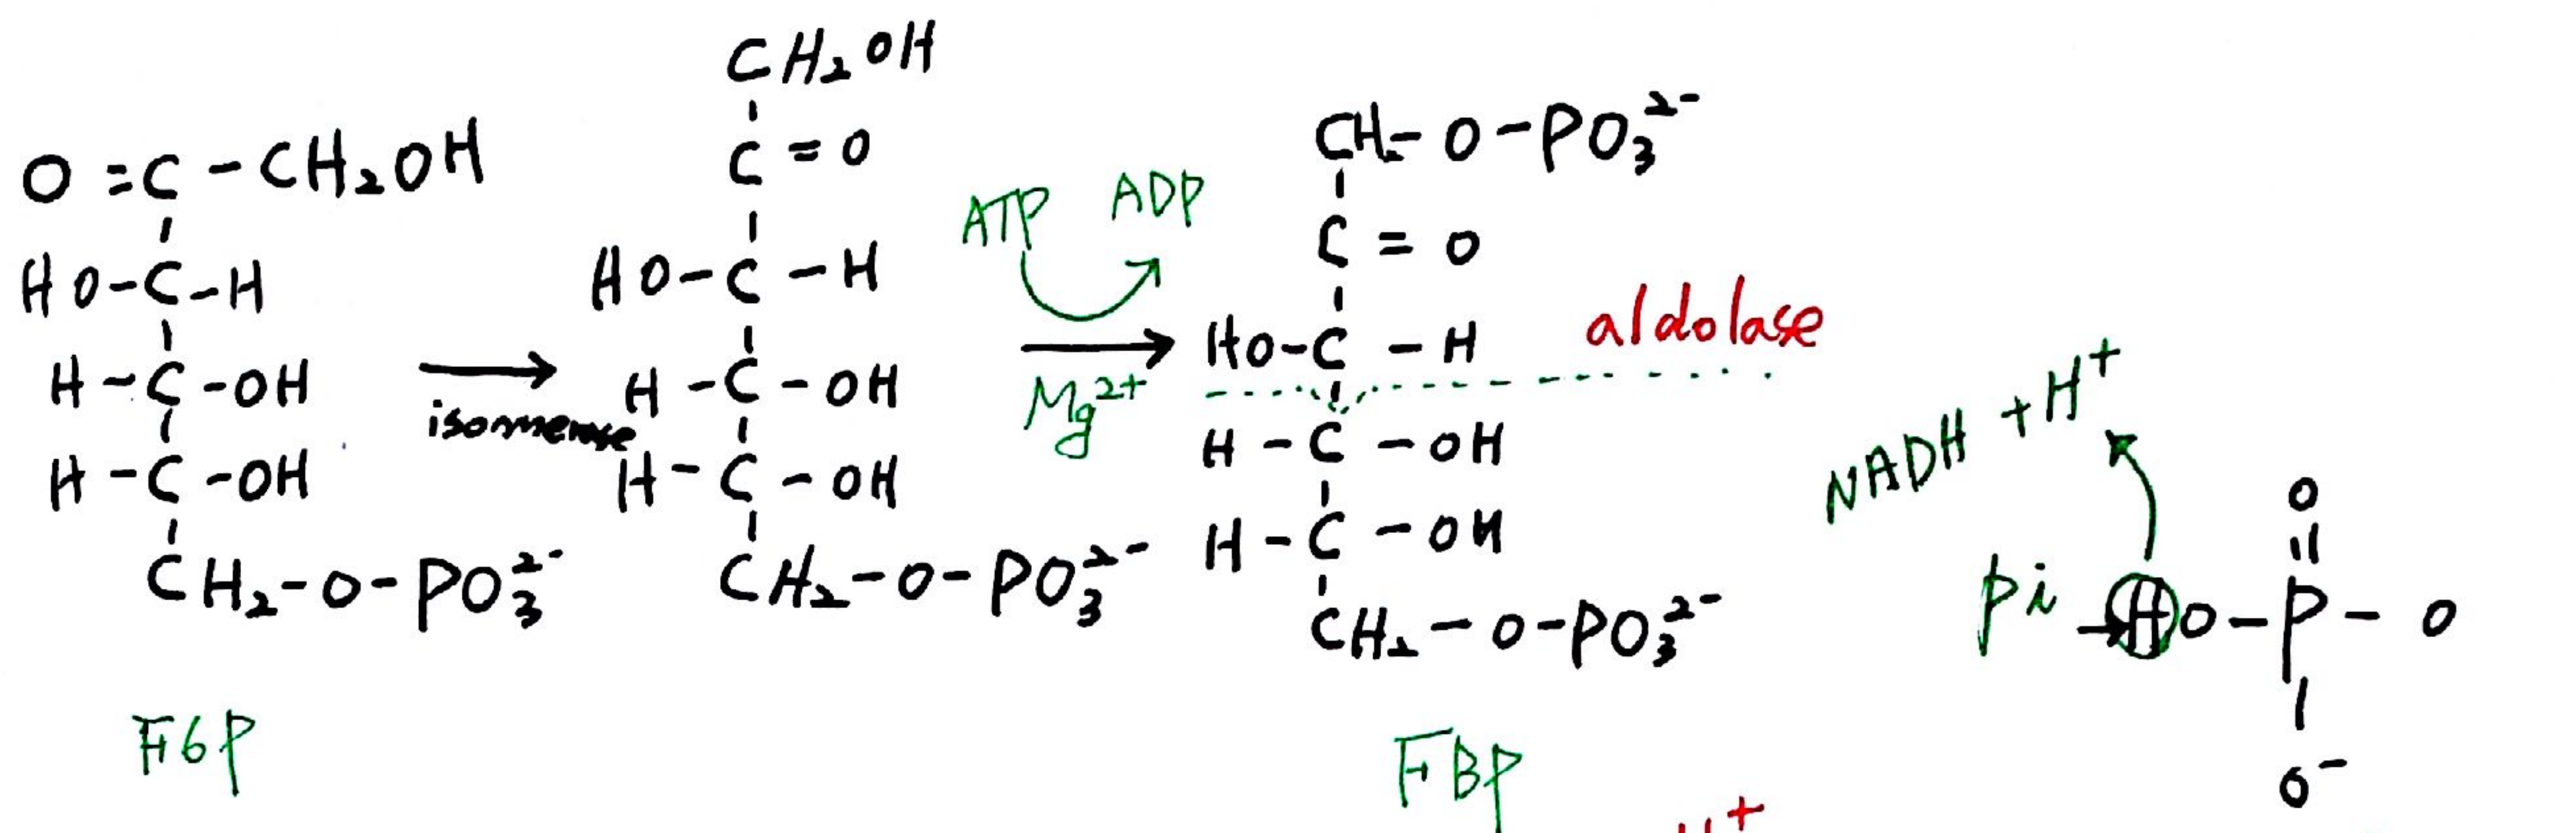 O=C-CH₂OH
HO-C-H
H-C-OH
H-C-OH
CH₂-O-PO₃²⁻
F6P
CH₂OH
C=O
HO-C-H
H-C-OH
H-C-OH
CH₂-O-PO₃²⁻
ATP ADP
Mg²⁺
CH-O-PO₃²⁻
C=O
HO-C-H
H-C-OH
H-C-OH
CH₂-O-PO₃²⁻
FBP
aldolase
NADH + H⁺
Pi
O
HO-P-O
O⁻